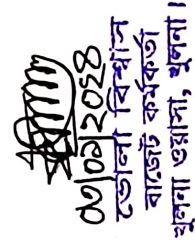 ০৩/০৯/২০২৪
ডোনা বিশ্বাস
বাজেট কর্মকর্তা
খুলনা ওয়াসা, খুলনা।